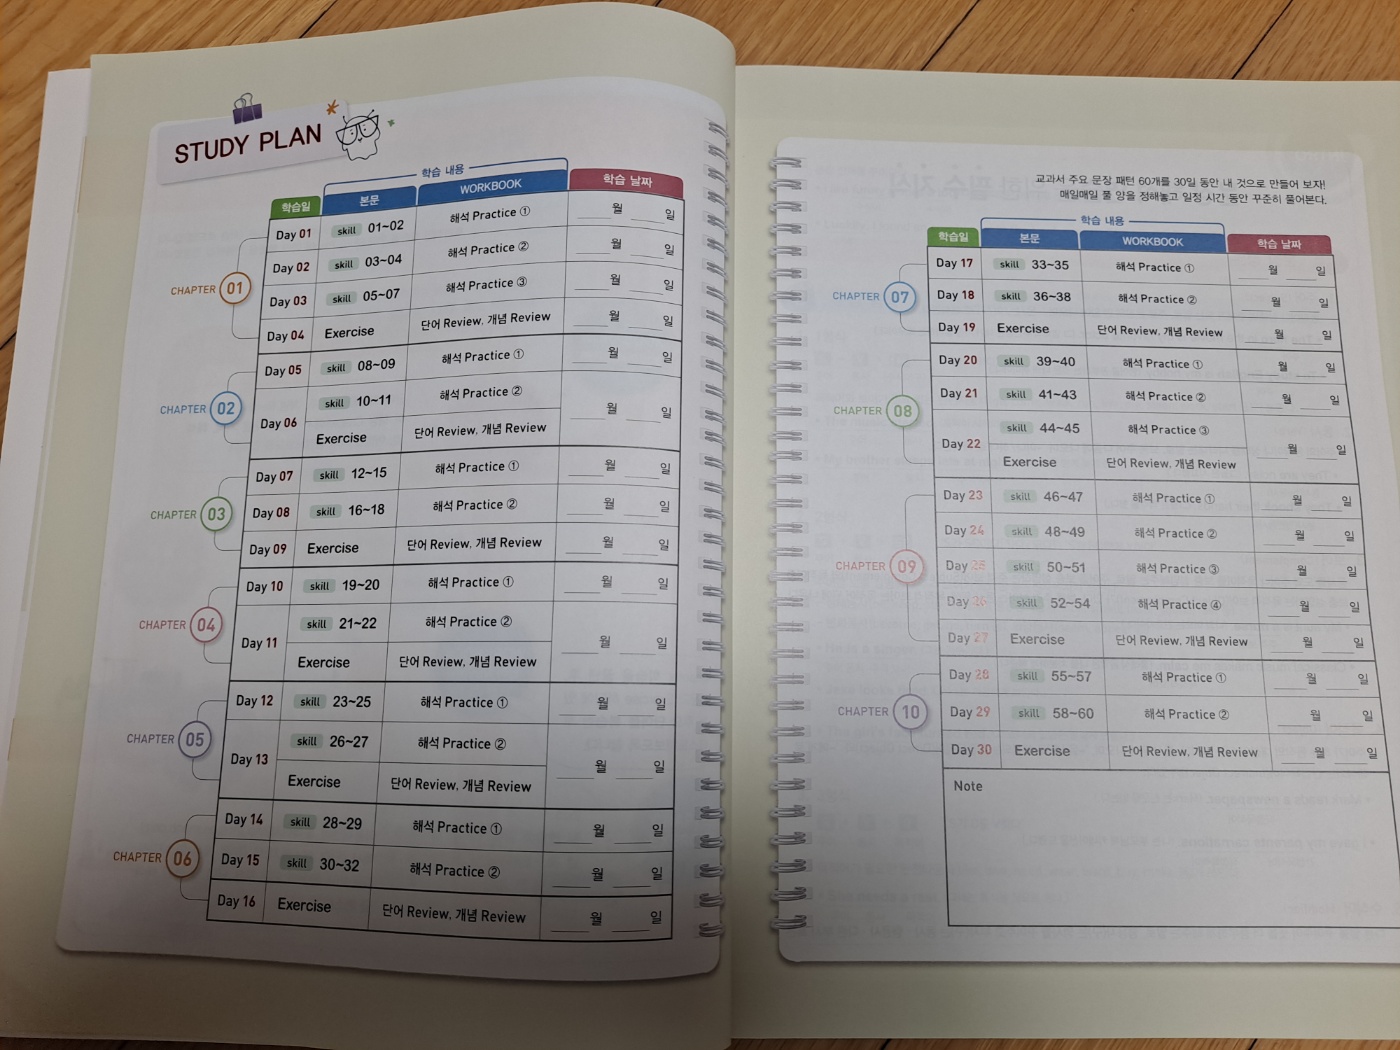 STUDY PLAN
학습 내용
학습일 본문 WORKBOOK 학습 날짜
CHAPTER 01
Day 01 skill 01~02 해석 Practice ① 월 일
Day 02 skill 03~04 해석 Practice ② 월 일
Day 03 skill 05~07 해석 Practice ③ 월 일
Day 04 Exercise 단어 Review, 개념 Review 월 일
CHAPTER 02
Day 05 skill 08~09 해석 Practice ① 월 일
Day 06 skill 10~11 해석 Practice ② 월 일
Exercise 단어 Review, 개념 Review
CHAPTER 03
Day 07 skill 12~15 해석 Practice ① 월 일
Day 08 skill 16~18 해석 Practice ② 월 일
Day 09 Exercise 단어 Review, 개념 Review 월 일
CHAPTER 04
Day 10 skill 19~20 해석 Practice ① 월 일
Day 11 skill 21~22 해석 Practice ② 월 일
Exercise 단어 Review, 개념 Review
CHAPTER 05
Day 12 skill 23~25 해석 Practice ① 월 일
Day 13 skill 26~27 해석 Practice ② 월 일
Exercise 단어 Review, 개념 Review
CHAPTER 06
Day 14 skill 28~29 해석 Practice ① 월 일
Day 15 skill 30~32 해석 Practice ② 월 일
Day 16 Exercise 단어 Review, 개념 Review 월 일
교과서 주요 문장 패턴 60개를 30일 동안 내 것으로 만들어 보자!
매일매일 풀 양을 정해놓고 일정 시간 동안 꾸준히 풀어본다.
학습 내용
학습일 본문 WORKBOOK 학습 날짜
CHAPTER 07
Day 17 skill 33~35 해석 Practice ① 월 일
Day 18 skill 36~38 해석 Practice ② 월 일
Day 19 Exercise 단어 Review, 개념 Review 월 일
CHAPTER 08
Day 20 skill 39~40 해석 Practice ① 월 일
Day 21 skill 41~43 해석 Practice ② 월 일
Day 22 skill 44~45 해석 Practice ③ 월 일
Exercise 단어 Review, 개념 Review
CHAPTER 09
Day 23 skill 46~47 해석 Practice ① 월 일
Day 24 skill 48~49 해석 Practice ② 월 일
Day 25 skill 50~51 해석 Practice ③ 월 일
Day 26 skill 52~54 해석 Practice ④ 월 일
Day 27 Exercise 단어 Review, 개념 Review 월 일
CHAPTER 10
Day 28 skill 55~57 해석 Practice ① 월 일
Day 29 skill 58~60 해석 Practice ② 월 일
Day 30 Exercise 단어 Review, 개념 Review 월 일
Note